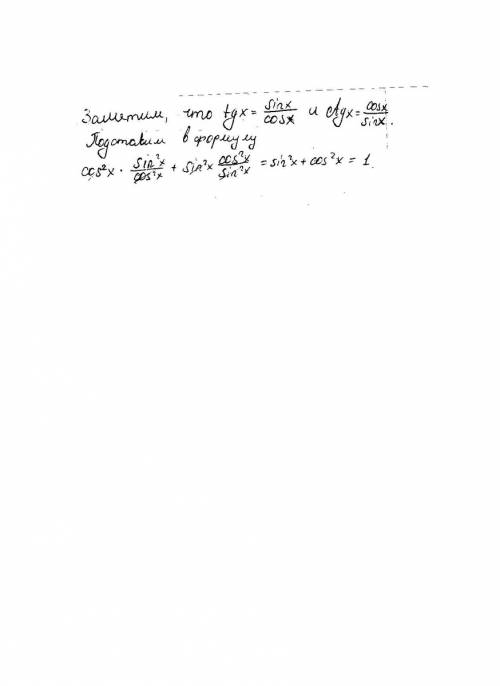 Заметим, что tgx = sinx/cosx и ctgx = cosx/sinx.
Подставим в формулу
cos²x · sin²x/cos²x + sin²x cos²x/sin²x = sin²x + cos²x = 1.